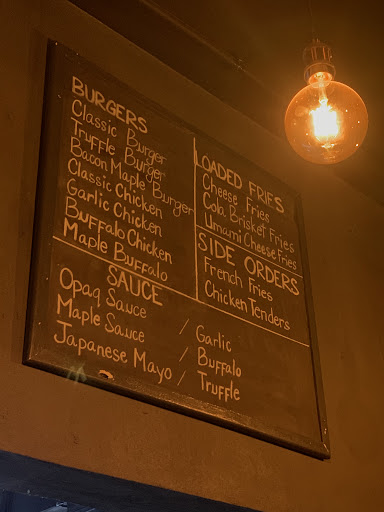 BURGERS
Classic Burger
Truffle Burger
Bacon Maple Burger
Classic Chicken
Garlic Chicken
Buffalo Chicken
Maple Buffalo
LOADED FRIES
Cheese Fries
Cola Brisket Fries
Umami Cheese Fries
SIDE ORDERS
French Fries
Chicken Tenders
SAUCE
Opaq Sauce / Garlic
Maple Sauce / Buffalo
Japanese Mayo / Truffle